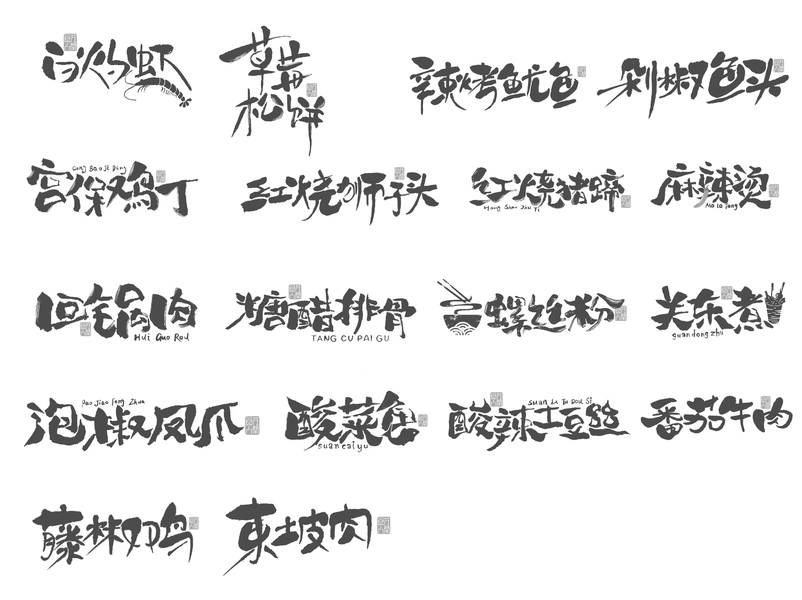 白灼虾
草莓
松饼
辣烤鱿鱼
剁椒鱼头
Gong Bao Ji Ding
宫保鸡丁
红烧狮子头
红烧猪蹄
Hong Shao Zhu Ti
麻辣烫
Ma la tang
回锅肉
Hui Guo Rou
糖醋排骨
TANG CU PAI GU
螺丝粉
关东煮
guan dong zhu
Pao Jiao Feng Zhua
泡椒凤爪
酸菜鱼
suan cai yu
Suan La Tu Dou Si
酸辣土豆丝
番茄牛肉
藤椒鸡
東坡肉